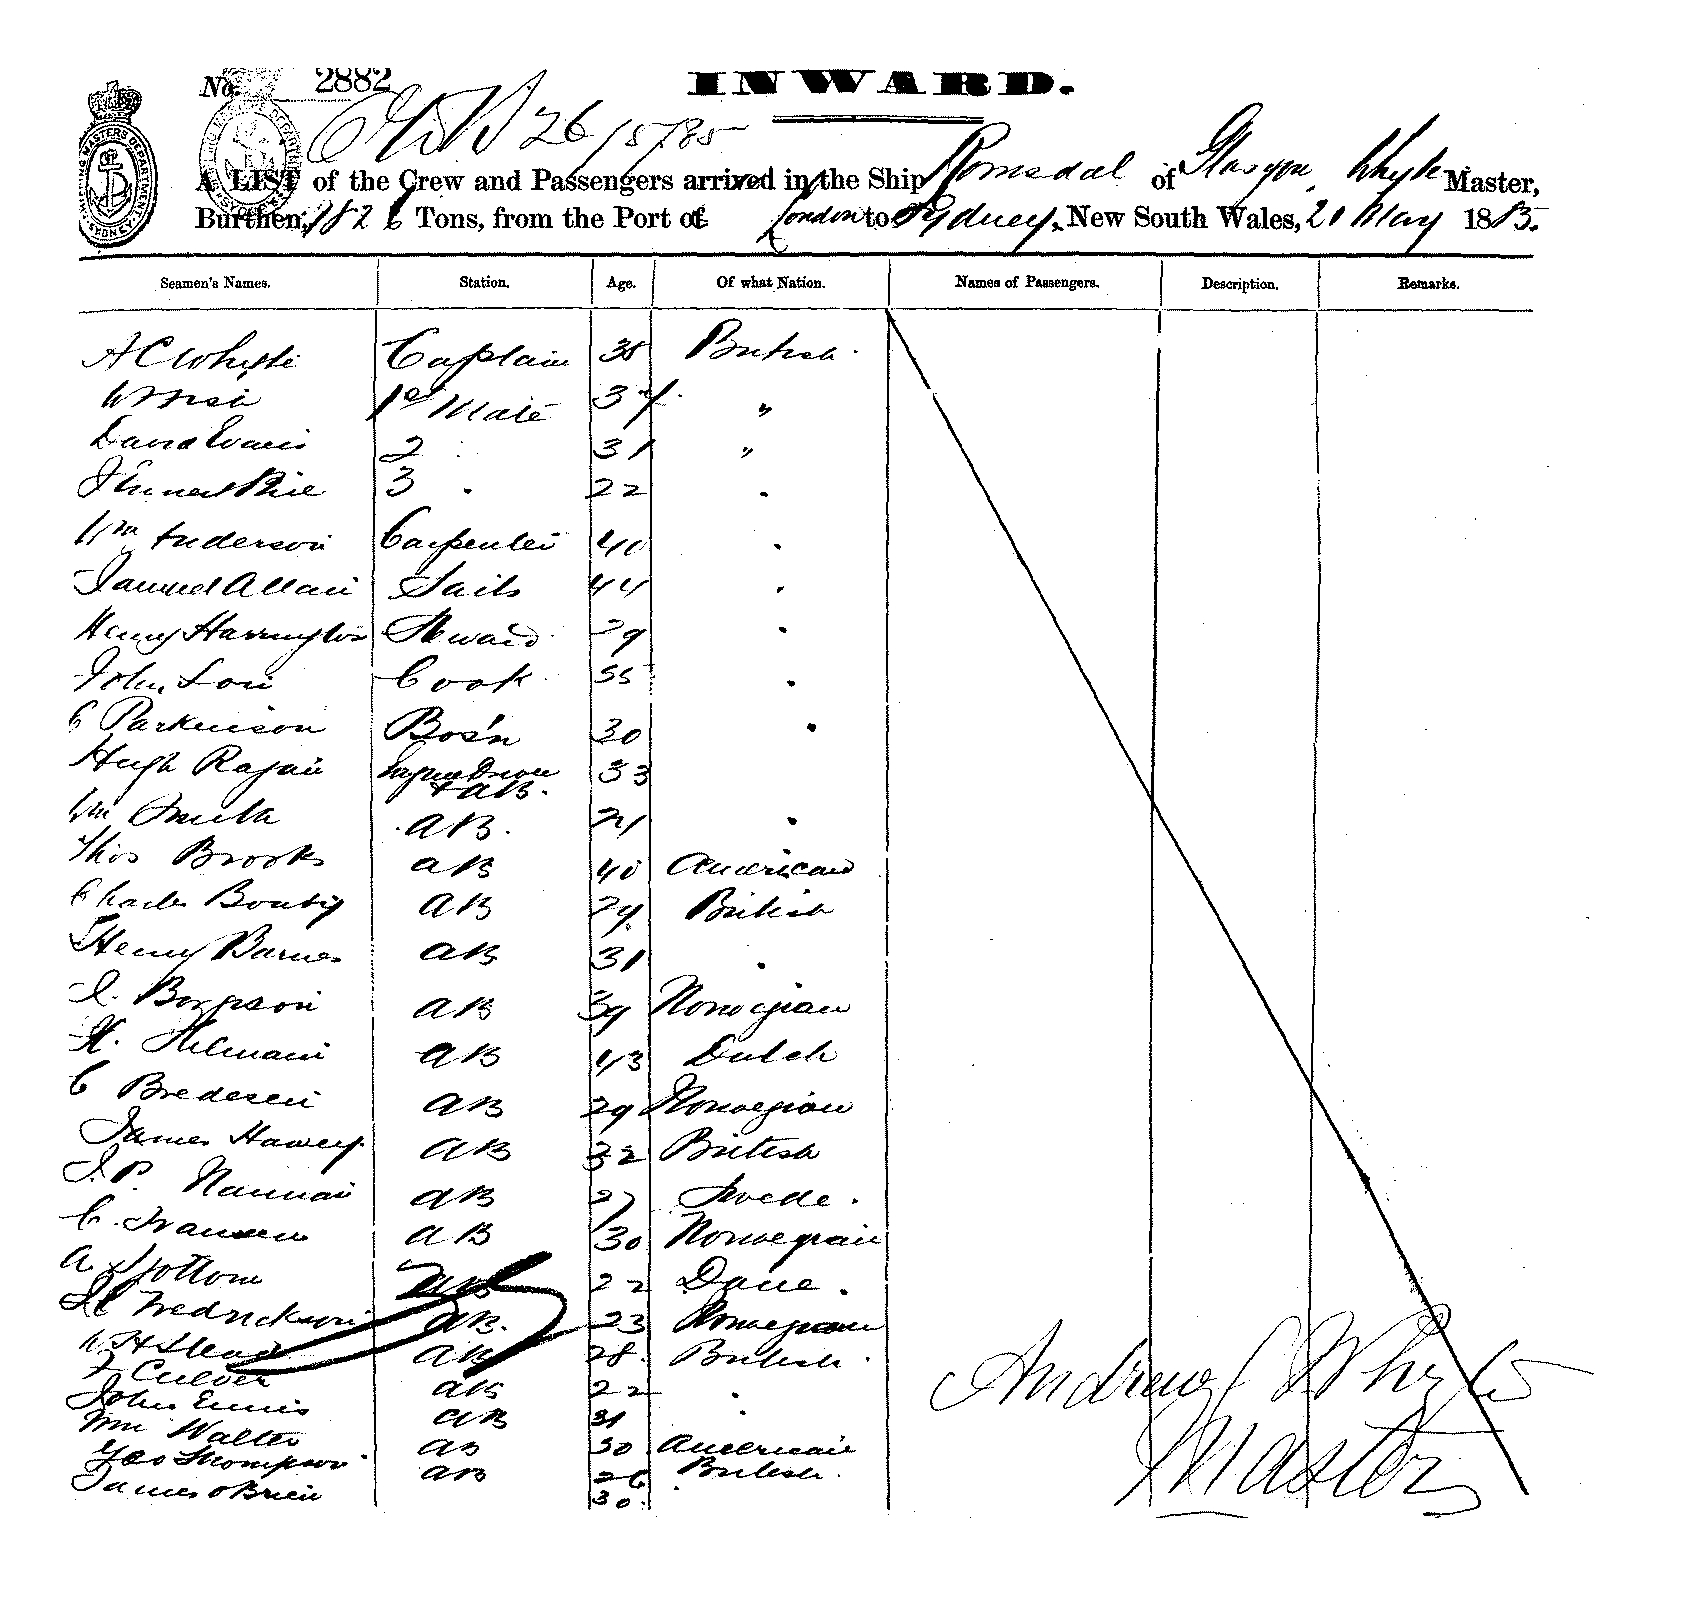 No. 2882
INWARD.
26/5/85
A LIST of the Crew and Passengers arrived in the Ship Romsdal of Glasgow, Whyte Master,
Burthen, 1826 Tons, from the Port of London to Sydney, New South Wales, 21 May 1885.
Seamen's Names. Station. Age. Of what Nation. Names of Passengers. Description. Remarks.
A C Whyte Captain 38 British
1st Mate 3 "
David Evans 2 31 "
3 22
Wm Anderson Carpenter 40
Samuel Allan Sails 44
Henry Harrington Steward 29
John Cook
C Parkinson Bos'n 30
Hugh Ragan Engine Driver 33
+ AB.
Wm Smith AB. 21
Thos Brooks AB 40 American
Charles AB 29 British
Henry Barnes AB 31
AB 39 Norwegian
H. Hilmani AB 43 Dutch
C Bredesen AB 29 Norwegian
James AB 32 British
J. P. AB 27 Swede.
C. Ivansen AB 30 Norwegian
A. 22 Dane.
Fredrickson AB. 23 Norwegian
W H AB 28 British
F Culver AB 22
John Ennis AB 31
Wm Walter AB 30 American
Geo Thompson AB 26 British
James O Brien 30
Andrew C Whyte
Master